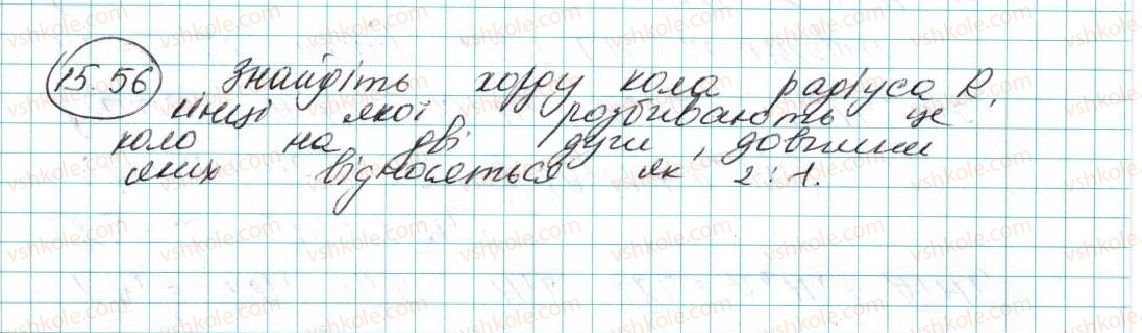 15.56 Знайдіть хорду кола радіуса R,
кінці якої розбивають це
коло на дві дуги, довжини
яких відносяться як 2:1.